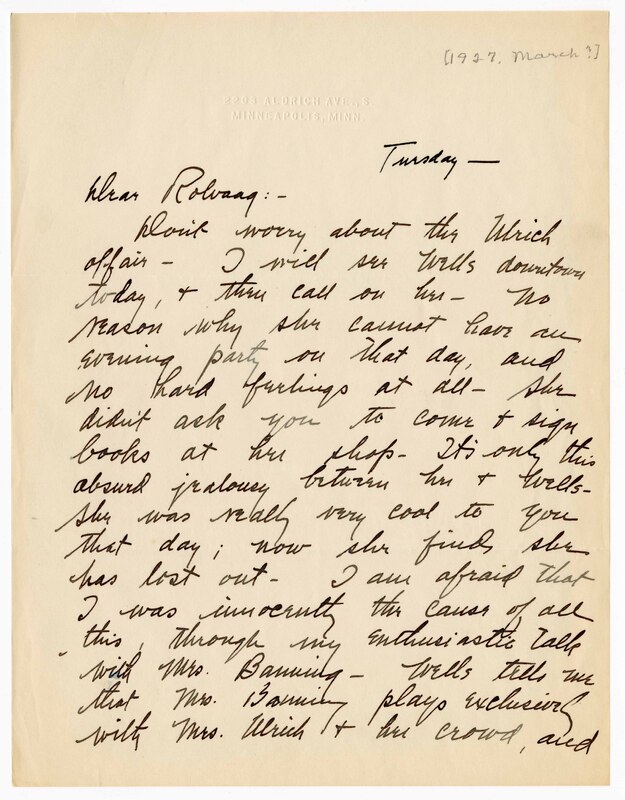 [1927, March?]
2203 ALDRICH AVE., S.
MINNEAPOLIS, MINN.
Tuesday —
Dear Rolvaag: -
Don't worry about the Ulrich
affair - I will see Wells downtown
today, & then call on her - No
reason why she cannot have an
evening party on that day, and
no hard feelings at all - She
didn't ask you to come & sign
books at her shop - It's only this
absurd jealousy between her & Wells -
She was really very cool to you
that day; now she finds she
has lost out - I am afraid that
I was innocently the cause of all
this, through my enthusiastic talk
with Mrs. Banning - Wells tells me
that Mrs. Banning plays exclusively
with Mrs. Ulrich & her crowd, and